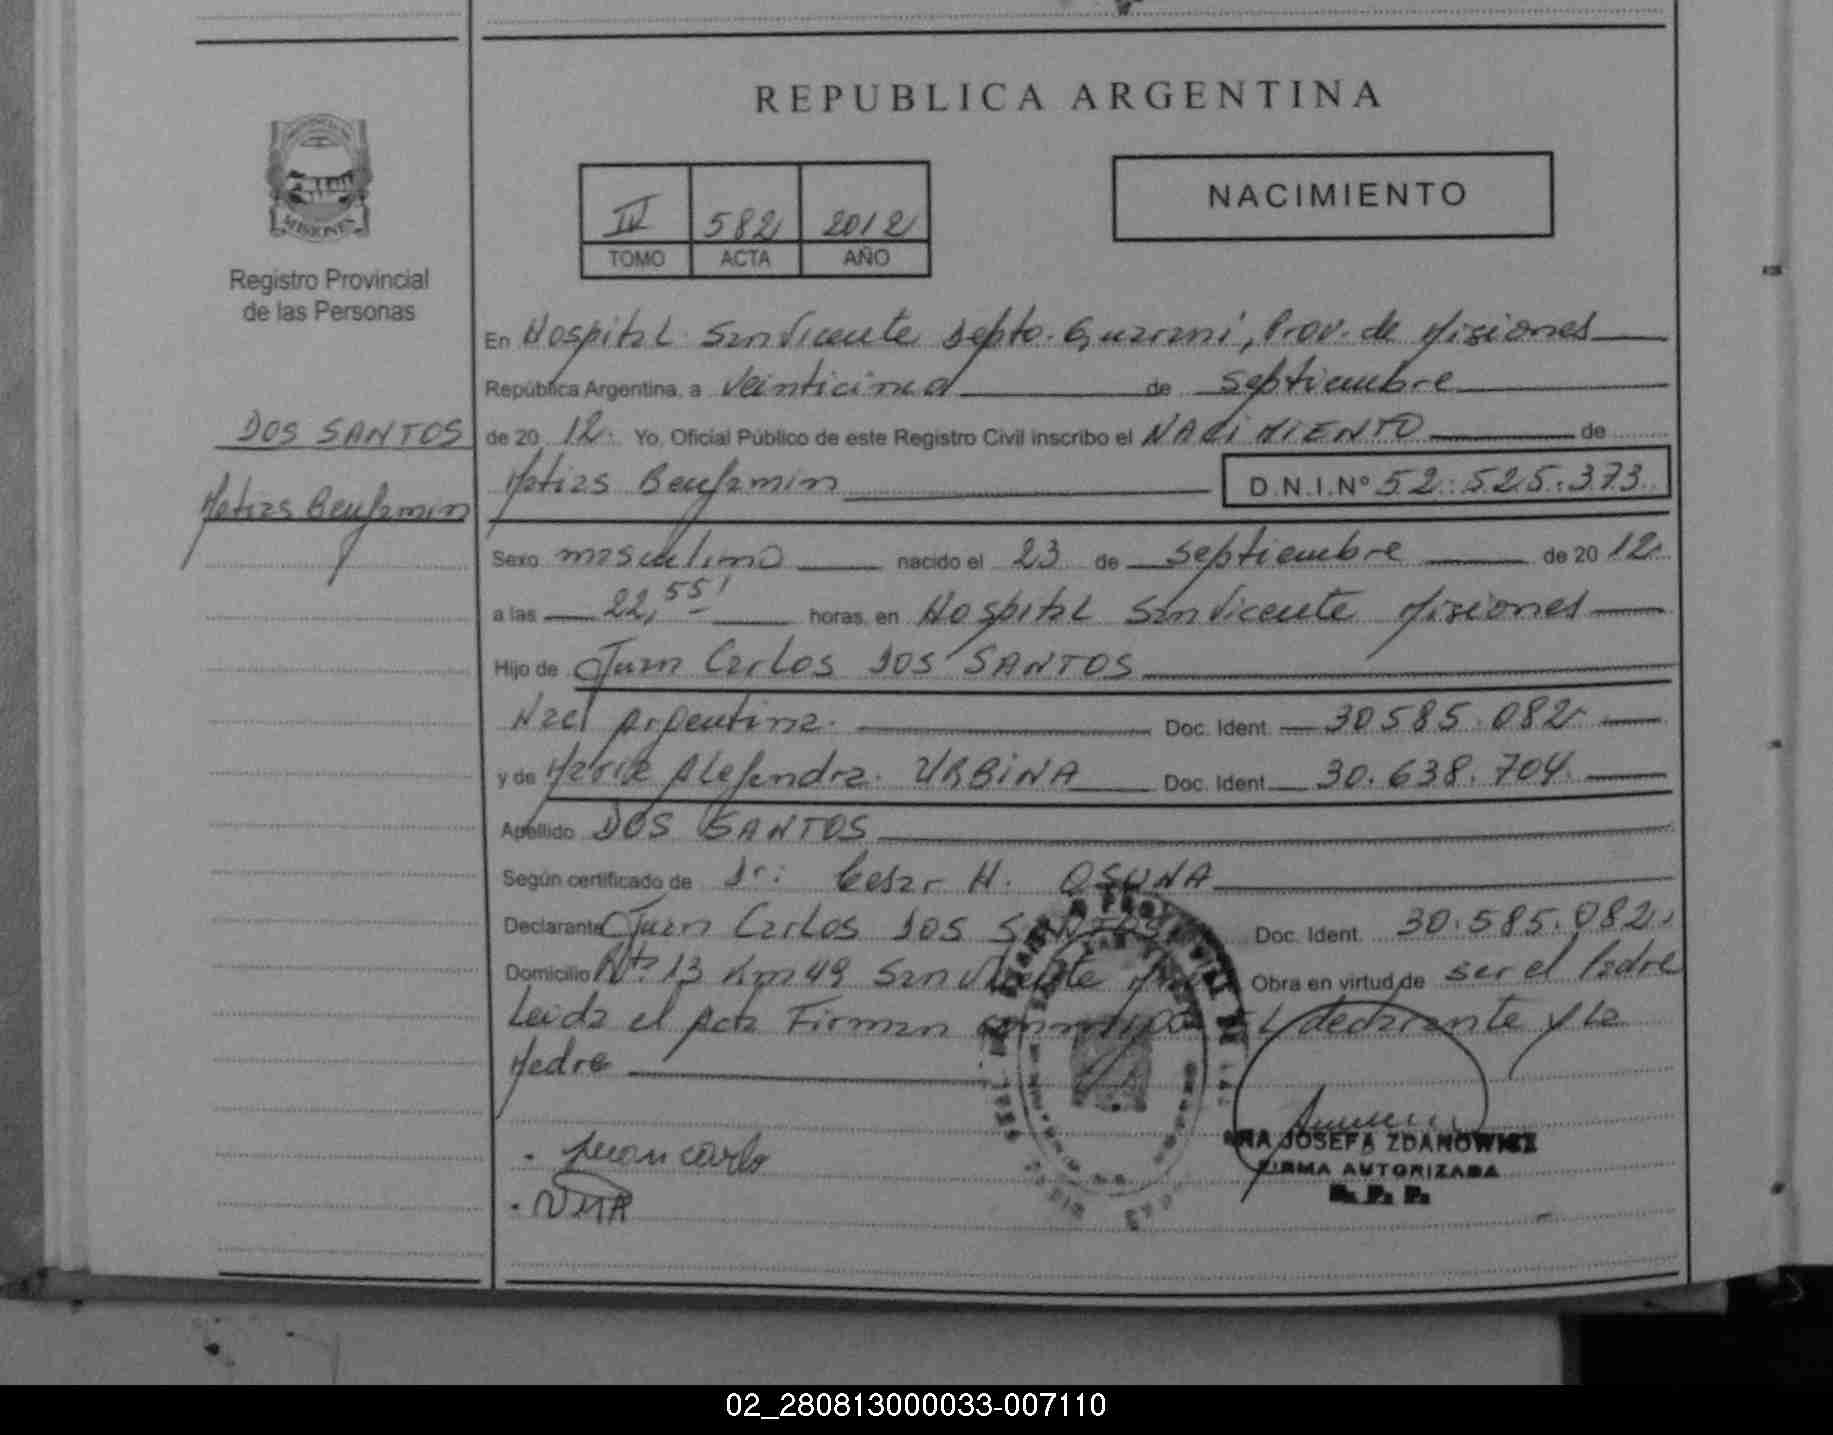 REPUBLICA ARGENTINA
NACIMIENTO
IV 582 2012
TOMO ACTA AÑO
MISIONES
Registro Provincial
de las Personas
DOS SANTOS
Matias Benjamin
En Hospital San Vicente Depto. Guarani, Prov. de Misiones
República Argentina, a veinticinco de septiembre
de 20 12. Yo, Oficial Público de este Registro Civil inscribo el NACIMIENTO de
Matias Benjamin D.N.I.Nº 52.525.373
Sexo masculino nacido el 23 de septiembre de 20 12
a las 22,55' horas, en Hospital San Vicente Misiones
Hijo de Juan Carlos DOS SANTOS
Nacl Argentina. Doc. Ident. 30585.082
y de Maria Alejandra URBINA Doc. Ident. 30.638.704
Apellido DOS SANTOS
Según certificado de Dr: Cesar H. OSUNA
Declarante Juan Carlos DOS SANTOS Doc. Ident. 30.585.082
Domicilio Rta 13 Km 49 San Vicente Obra en virtud de ser el Padre
Leida el Acta Firman conmigo EL declarante y La
Madre
Juan carlo
JOSEFA ZDANOWICZ
FIRMA AUTORIZADA
R. P. P.
02_280813000033-007110